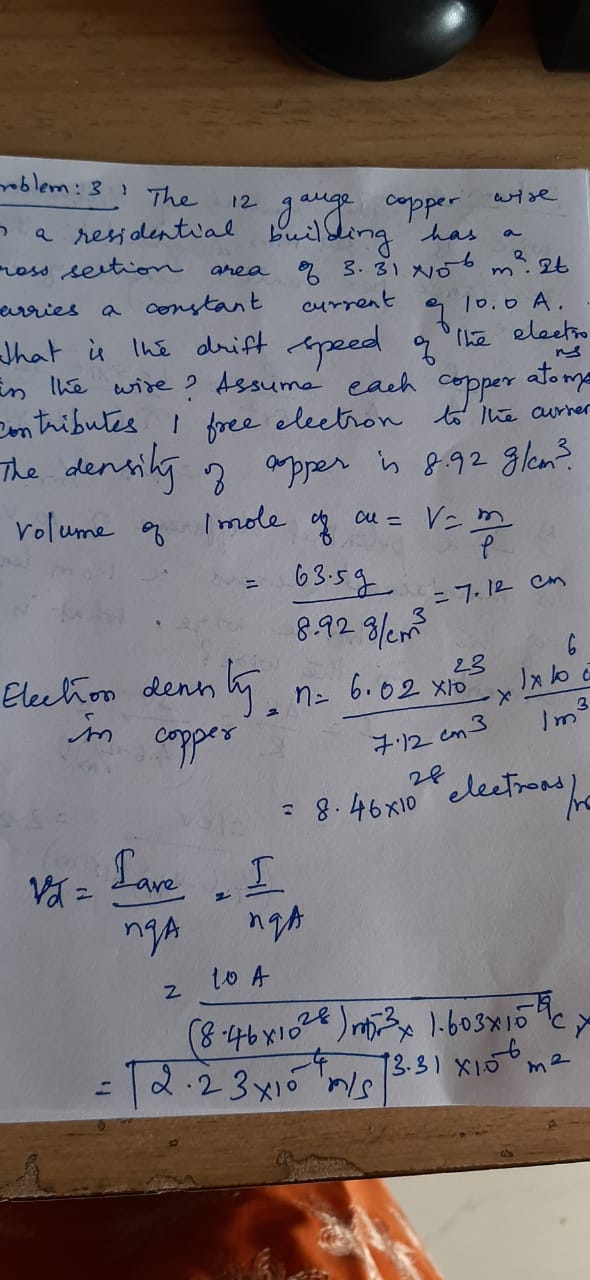 roblem: 3 : The 12 gauge copper wire
a residential building has a
ross section area of 3.31 x10⁻⁶ m². It
arries a constant current of 10.0 A.
What is the drift speed of the electro
ns
in the wire? Assume each copper atoms
contributes 1 free electron to the curren
The density of copper is 8.92 g/cm³.
Volume of 1 mole of cu = V = m/ρ
= 63.5g / 8.92 g/cm³ = 7.12 cm
Electron density in copper = n = 6.02 x10²³ / 7.12 cm³ x 1x10⁶ c / 1m³
= 8.46x10²⁸ electrons/
Vd = Iave / nqA = I / nqA
= 10 A / (8.46x10²⁸) m⁻³ x 1.603x10⁻¹⁹C x 3.31 x10⁻⁶ m²
= 2.23x10⁻⁴ m/s